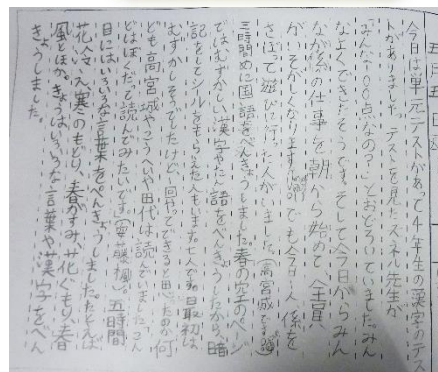 五月五日
今日は単元テストがあって4年生の漢字のテス
トがありました。テストを見たズネル先生が
「みんな100点なの?」とおどろいていました。みん
なよくできたそうです。そして今日からみん
なが係の仕事を朝から始めて、全員
がいそがしくなります。でも今日一人係を
さぼって遊びに行った人がいました。(高宮城です)
三時間めに国語をべんきょうしました。春の空のページ
ではむずかしい漢字やたん語をべんきょうしたから、暗
記をしてシールをもらえた人もいます。七人です。最初は
むずかしそうでしたけど、回やってできると思ったのか何
ども高宮城やこうへいや田代は読んでいました。こん
どはぼくだで読んでみたいです。五時間
目にはいろいろな言葉をべんきょうしました。たとえば
花冷え、寒のもどり、春がすみ、花ぐもり、春
風とほか、きょうはいろいろな言葉や漢字をべん
きょうしました。